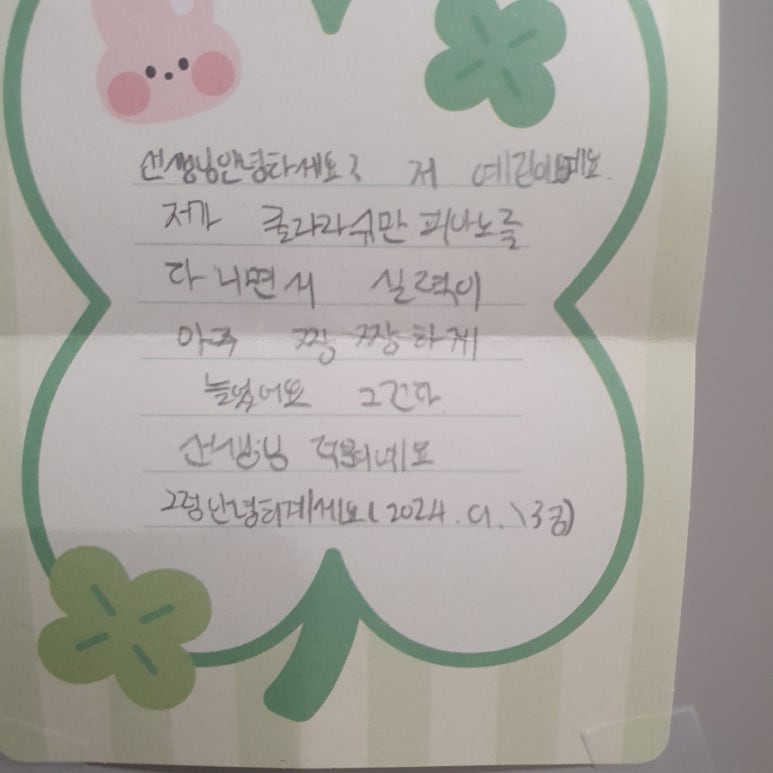 선생님안녕하세요? 저 예린이예요.
저가 클라라슈만 피아노를
다니면서 실력이
아주 짱 짱하게
늘었어요 그긴다
선생님 덕뷔네요
그렁안녕히계세요(2024.9.13금)